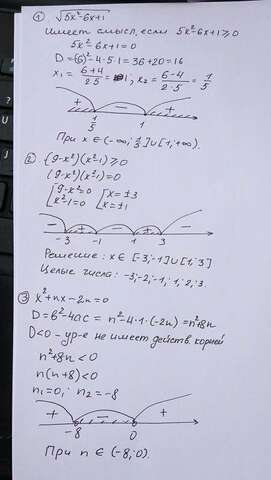 ① √5x²-6x+1
Имеет смысл, если 5x²-6x+1⩾0
5x²-6x+1=0
D=(-6)²-4·5·1=36+20=16
x₁ = 6+4/2·5 = 1, x₂ = 6-4/2·5 = 1/5
+ − +
1/5 1
При x ∈ (-∞; 1/5]∪[1; +∞).
② (9-x²)(x²-1)⩾0
(9-x²)(x²-1)=0
[9-x²=0 [x=±3
x²-1=0 x=±1
− + − + −
-3 -1 1 3
Решение: x ∈ [-3;-1]∪[1;3]
Целые числа: -3;-2;-1; 1; 2; 3.
③ x²+nx-2n=0
D=b²-4ac = n²-4·1·(-2n) = n²+8n
D<0 - ур-е не имеет действ. корней
n²+8n<0
n(n+8)<0
n₁=0; n₂=-8
+ − +
-8 0
При n ∈ (-8;0).